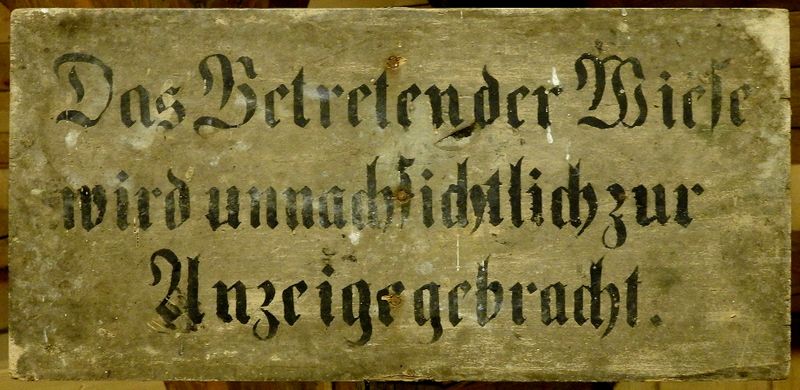 Das Betreten der Wiese
wird unnachsichtlich zur
Anzeige gebracht.